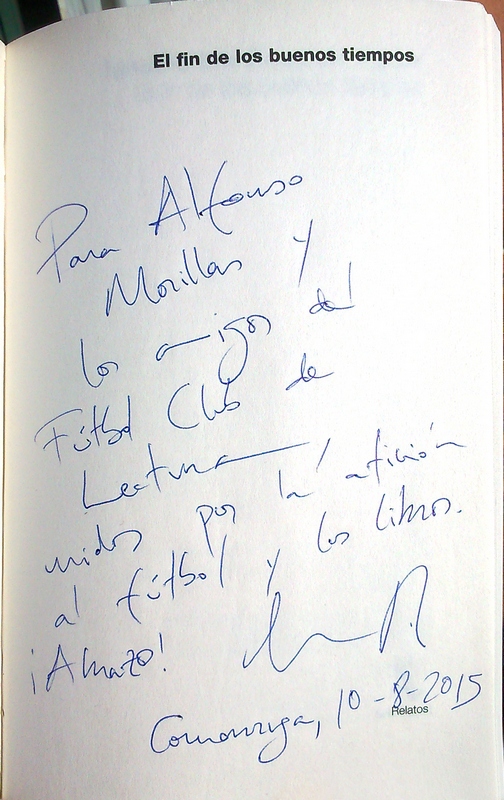 El fin de los buenos tiempos
Para Alfonso
Morillas y
los amigos del
Fútbol Club de
Lectura,
unidos por la afición
al fútbol y los libros.
¡Abrazo!
Comarruga, 10-8-2015
Relatos